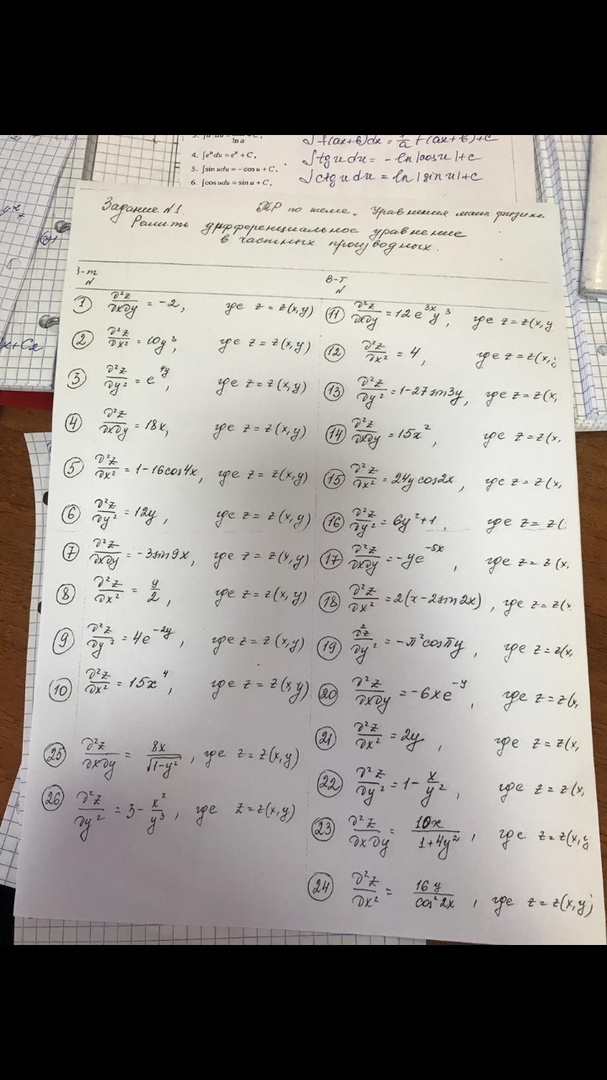 ln a
4. ∫eᵘ du = eᵘ + C,
5. ∫sin u du = − cos u + C,
6. ∫cos u du = sin u + C,
∫f(ax+b)dx = 1/a F(ax+b)+c
∫tg u du = − ln|cos u|+c
∫ctg u du = ln|sin u|+c
Задание N1. ТР по теме. Уравнения
Решить дифференциальное уравнение
в частных производных.
В-т N
В-т N
① ∂²z/∂x∂y = −2, где z = z(x,y)
② ∂²z/∂x² = 10y³, где z = z(x,y)
③ ∂²z/∂y² = e^4y, где z = z(x,y)
④ ∂²z/∂x∂y = 18x, где z = z(x,y)
⑤ ∂²z/∂x² = 1−16cos4x, где z = z(x,y)
⑥ ∂²z/∂y² = 12y, где z = z(x,y)
⑦ ∂²z/∂x∂y = −3sin9x, где z = z(x,y)
⑧ ∂²z/∂x² = y/2, где z = z(x,y)
⑨ ∂²z/∂y² = 4e^−2y, где z = z(x,y)
⑩ ∂²z/∂x² = 15x⁴, где z = z(x,y)
㉕ ∂²z/∂x∂y = 8x/√(1−y²), где z = z(x,y)
㉖ ∂²z/∂y² = 3 − x²/y³, где z = z(x,y)
⑪ ∂²z/∂x∂y = 12e^3x y³, где z = z(x,y
⑫ ∂²z/∂x² = 4, где z = z(x,
⑬ ∂²z/∂y² = 1−27sin3y, где z = z(x,
⑭ ∂²z/∂x∂y = 15x², где z = z(x,
⑮ ∂²z/∂x² = 24y cos2x, где z = z(x,
⑯ ∂²z/∂y² = 6y²+1, где z = z(
⑰ ∂²z/∂x∂y = −ye^−5x, где z = z(x,
⑱ ∂²z/∂x² = 2(x−2sin2x), где z = z(x,
⑲ ∂²z/∂y² = −π²cosπy, где z = z(x,
⑳ ∂²z/∂x∂y = −6xe^−y, где z = z(x,
㉑ ∂²z/∂x² = 2y, где z = z(x,
㉒ ∂²z/∂y² = 1− x/y², где z = z(x,
㉓ ∂²z/∂x∂y = 10x/(1+4y²), где z = z(x,y
㉔ ∂²z/∂x² = 16y/cos²2x, где z = z(x,y)